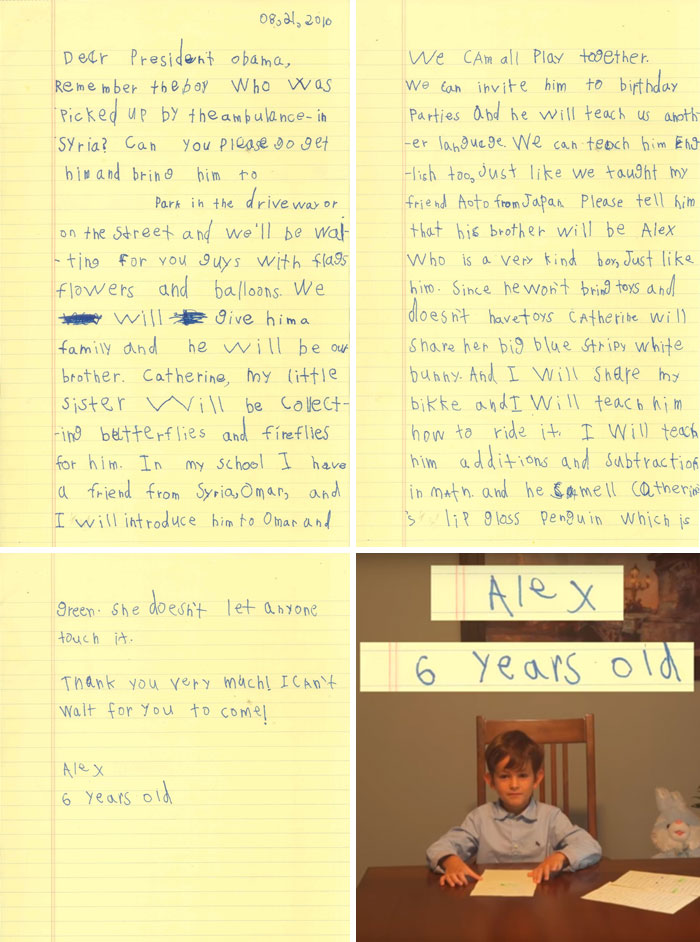 08,21,2010
Dear President obama,
Remember the boy who was
picked up by the ambulance-in
Syria? Can you please go get
him and bring him to
Park in the driveway or
on the street and we'll be wai-
-ting for you guys with flags
flowers and balloons. We
will give him a
family and he will be our
brother. Catherine, my little
sister will be collect-
-ing butterflies and fireflies
for him. In my school I have
a friend from Syria, Omar, and
I will introduce him to Omar and
We CAn all play together.
We can invite him to birthday
parties and he will teach us anoth-
-er language. We can teach him Eng
-lish too, just like we taught my
friend Aoto from Japan. Please tell him
that his brother will be Alex
who is a very kind boy, Just like
him. Since he won't bring toys and
doesn't have toys Catherine will
share her big blue stripy white
bunny. And I will share my
bikke and I will teach him
how to ride it. I will teach
him additions and subtractions
in math. and he smell Catherine
's lip gloss penguin which is
green. she doesn't let anyone
touch it.
Thank you very much! I can't
wait for you to come!
Alex
6 years old
Alex
6 years old